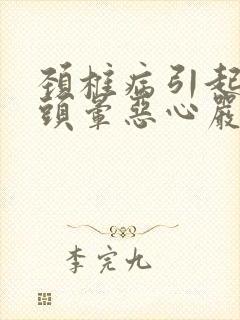 頚椎病引起
頭暈惡心嚴
李完九